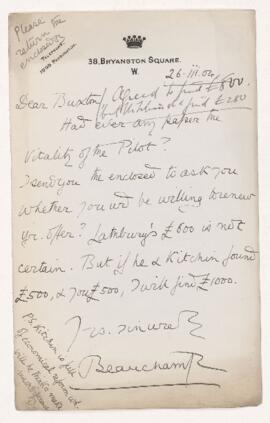 Please
return the
enclosed
TELEPHONE,
1908 PADDINGTON.
38, BRYANSTON SQUARE.
W.
26-iii.02
Agreed to find £500.
if Kitchin find £500
Dear Buxton/
Had ever any paper the
Vitality of the Pilot?
I send you the enclosed to ask you
whether you wd be willing to renew
yr. offer? Lathbury's £600 is not
certain. But if he & Kitchin found
£500, & you £500, I will find £1000.
Yrs. sincerely
Beauchamp
P.S. Kitchin is full
of economical reform wh
will be made